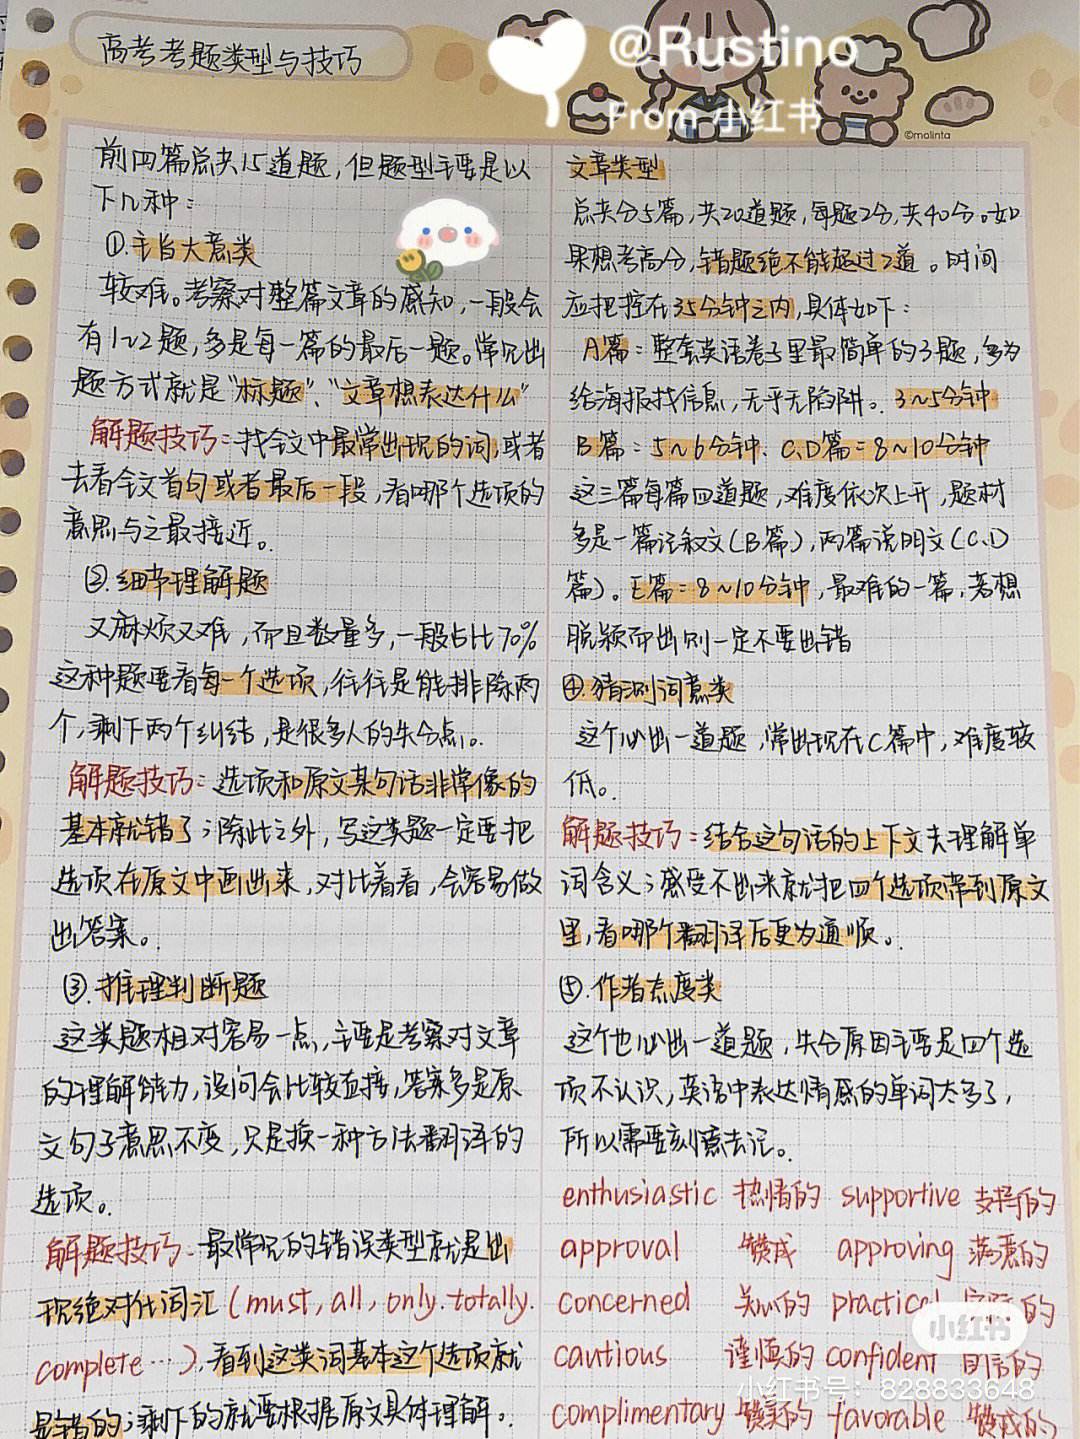 高考考题类型与技巧
@Rustino
From 小红书
©malinta
前四篇总共15道题,但题型主要是以
下几种:
①.主旨大意类
较难。考察对整篇文章的感知,一般会
有1~2题,多是每一篇的最后一题。常见出
题方式就是“标题”、“文章想表达什么”
解题技巧:找全文中最常出现的词,或者
去看全文首句或者最后一段,看哪个选项的
意思与之最接近。
②.细节理解题
又麻烦又难,而且数量多,一般占比70%
这种题要看每一个选项,往往是能排除两
个,剩下两个纠结,是很多人的失分点。
解题技巧:选项和原文某句话非常像的
基本就错了;除此之外,写这类题一定要把
选项在原文中画出来,对比着看,会容易做
出答案。
③.推理判断题
这类题相对容易一点,主要是考察对文章
的理解能力,设问会比较直接,答案多是原
文句子意思不变,只是换一种方法翻译的
选项。
解题技巧:最常见的错误类型就是出
现绝对化词汇(must,all,only.totally.
complete…),看到这类词基本这个选项就
是错的;剩下的就要根据原文具体理解。
文章类型
总共分5篇,共20道题,每题2分,共40分。如
果想考高分,错题绝不能超过2道。时间
应把握在35分钟之内,具体如下:
A篇:整套英语卷子里最简单的3题,多为
给海报找信息,无乎无陷阱。3~5分钟
B篇:5~6分钟.C,D篇=8~10分钟
这三篇每篇四道题,难度依次上升,题材
多是一篇记叙文(B篇),两篇说明文(C、D
篇)。E篇=8~10分钟,最难的一篇,若想
脱颖而出则一定不要出错
④.猜测词意类
这个必出一道题,常出现在C篇中,难度较
低。
解题技巧:结合这句话的上下文去理解单
词含义;感受不出来就把四个选项带到原文
里,看哪个翻译后更为通顺。
⑤.作者态度类
这个也必出一道题,失分原因主要是四个选
项不认识,英语中表达情感的单词太多了,
所以需要刻意去记。
enthusiastic 热情的 supportive 支持的
approval 赞成 approving 满意的
concerned 关心的 practical 的
cautious 谨慎的 confident 自信的
complimentary 赞美的 favorable 赞成的
小红书
小红书号:828833648